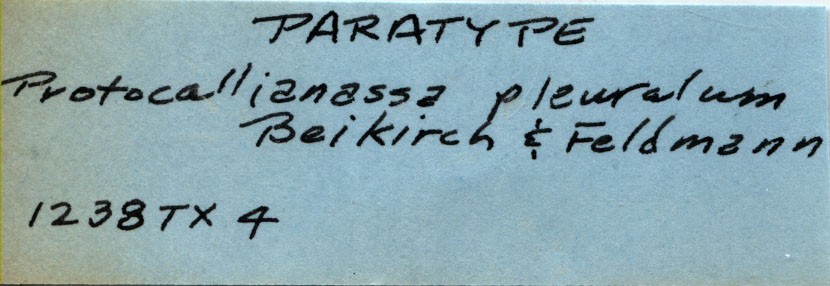 PARATYPE
Protocallianassa pleuralum
Beikirch & Feldmann
1238TX4